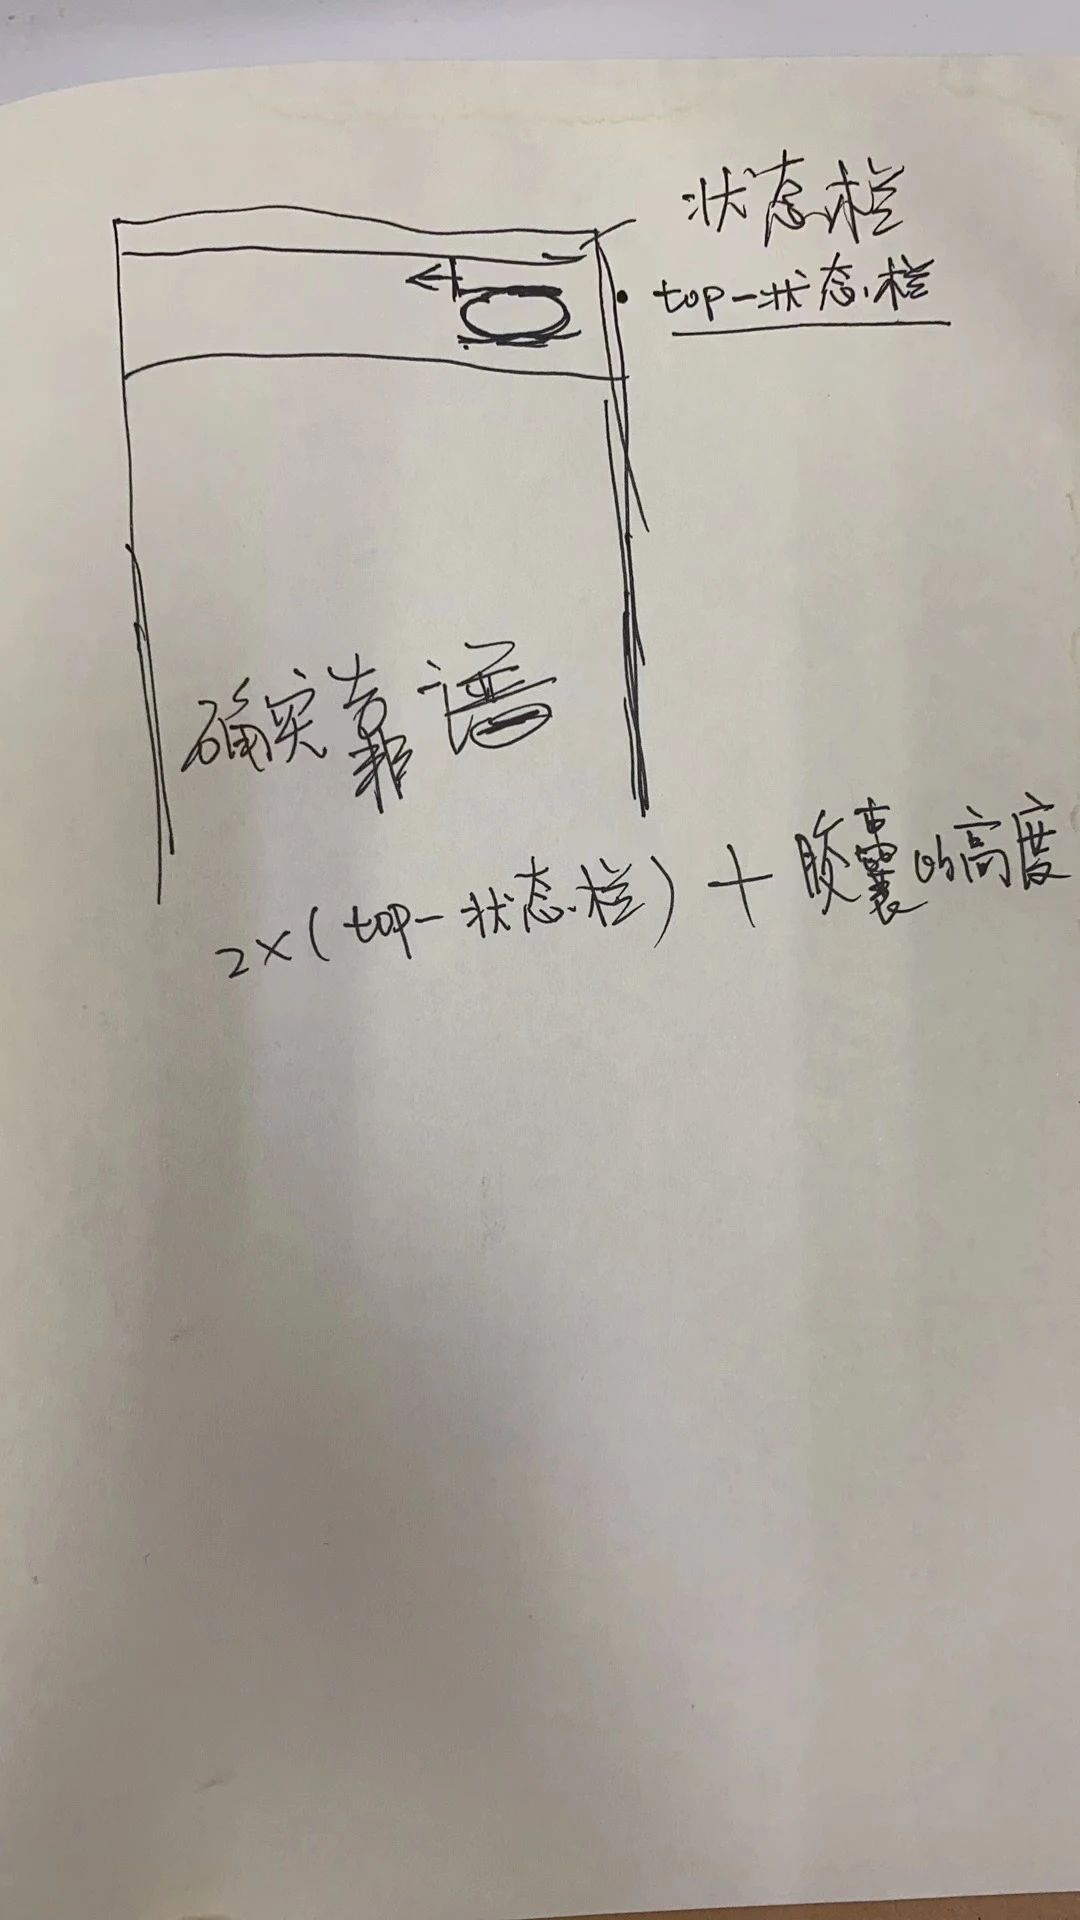 状态栏
top-状态栏
确实靠谱
2×(top-状态栏)+胶囊的高度